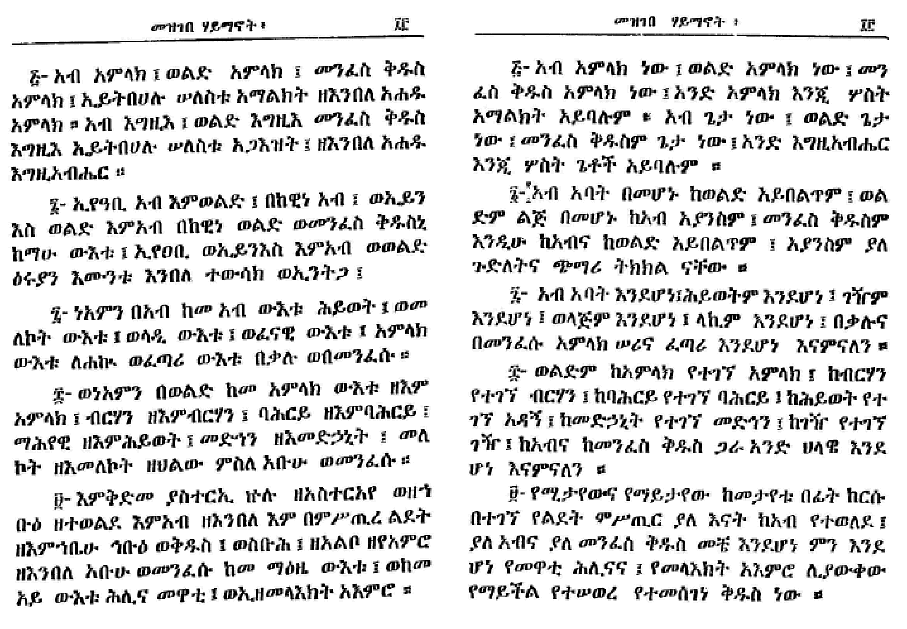 መዝገበ ሃይማኖት ፥ ፲፱
፭- አብ አምላክ ፤ ወልድ አምላክ ፤ መንፈስ ቅዱስ
አምላክ ፤ ኢይትበሀሉ ሠለስቱ አማልክት ዘእንበለ አሐዱ
አምላክ ። አብ እግዚእ ፤ ወልድ እግዚእ መንፈስ ቅዱስ
እግዚእ ኢይትበሀሉ ሠለስቱ አጋእዝት ፤ ዘእንበለ አሐዱ
እግዚአብሔር ።
፮- ኢየዓቢ አብ እምወልድ ፤ በከዊነ አብ ፤ ወኢይን
እስ ወልድ እምአብ በከዊነ ወልድ ወመንፈስ ቅዱስኒ
ከማሁ ውእቱ ፤ ኢየዐቢ ወኢይንእስ እምአብ ወወልድ
ዕሩያን እሙንቱ እንበለ ተውሳክ ወኢንትጋ ፤
፯- ነአምን በአብ ከመ አብ ውእቱ ሕይወት ፤ ወመ
ለኮት ውእቱ ፤ ወላዲ ውእቱ ፤ ወፈናዊ ውእቱ ፤ አምላክ
ውእቱ ለሐኪ ወፈጣሪ ውእቱ በቃሉ ወበመንፈሱ ።
፰- ወነአምን በወልድ ከመ አምላክ ውእቱ ዘእም
አምላክ ፤ ብርሃን ዘእምብርሃን ፤ ባሕርይ ዘእምባሕርይ ፤
ማሕየዊ ዘእምሕይወት ፤ መድኅን ዘእመድኃኒት ፤ መለ
ኮት ዘእመለኮት ዘህልው ምስለ አቡሁ ወመንፈሱ ።
፱- እምቅድመ ያስተርኢ ኵሉ ዘአስተርአየ ወዘኅ
ቡዕ ዘተወልደ እምአብ ዘእንበለ እም በምሥጢረ ልደት
ዘእምኅቢሁ ኅቡዕ ወቅዱስ ፤ ወስቡሕ ፤ ዘአልቦ ዘየአምሮ
ዘእንበለ አቡሁ ወመንፈሱ ከመ ማዕዜ ውእቱ ፤ ወከመ
አይ ውእቱ ሕሊና መዋቲ ፤ ወኢዘመላእክት አእምሮ ።
መዝገበ ሃይማኖት ፥ ፲፱
፭- አብ አምላክ ነው ፤ ወልድ አምላክ ነው ፤ መን
ፈስ ቅዱስ አምላክ ነው ፤ አንድ አምላክ እንጂ ሦስት
አማልክት አይባሉም ። አብ ጌታ ነው ፤ ወልድ ጌታ
ነው ፤ መንፈስ ቅዱስም ጌታ ነው ፤ አንድ እግዚአብሔር
እንጂ ሦስት ጌቶች አይባሉም ።
፮- አብ አባት በመሆኑ ከወልድ አይበልጥም ፤ ወል
ድም ልጅ በመሆኑ ከአብ አያንስም ፤ መንፈስ ቅዱስም
እንዲሁ ከአብና ከወልድ አይበልጥም ፤ አያንስም ያለ
ጉድለትና ጭማሪ ትክክል ናቸው ።
፯- አብ አባት እንደሆነ፤ሕይወትም እንደሆነ ፤ ገዥም
እንደሆነ ፤ ወላጅም እንደሆነ ፤ ላኪም እንደሆነ ፤ በቃሉና
በመንፈሱ አምላክ ሠሪና ፈጣሪ እንደሆነ እናምናለን ።
፰- ወልድም ከአምላክ የተገኘ አምላክ ፤ ከብርሃን
የተገኘ ብርሃን ፤ ከባሕርይ የተገኘ ባሕርይ ፤ ከሕይወት የተ
ገኘ አዳኝ ፤ ከመድኃኒት የተገኘ መድኅን ፤ ከገዥ የተገኘ
ገዥ ፤ ከአብና ከመንፈስ ቅዱስ ጋራ አንድ ሀላዌ እንደ
ሆነ እናምናለን ።
፱- የሚታየውና የማይታየው ከመታየቱ በፊት ከርሱ
በተገኘ የልደት ምሥጢር ያለ እናት ከአብ የተወለደ ፤
ያለ አብና ያለ መንፈስ ቅዱስ መቼ እንደሆነ ምን እንደ
ሆነ የመዋቲ ሕሊናና ፤ የመላእክት አእምሮ ሊያውቀው
የማይችል የተሠወረ የተመሰገነ ቅዱስ ነው ።